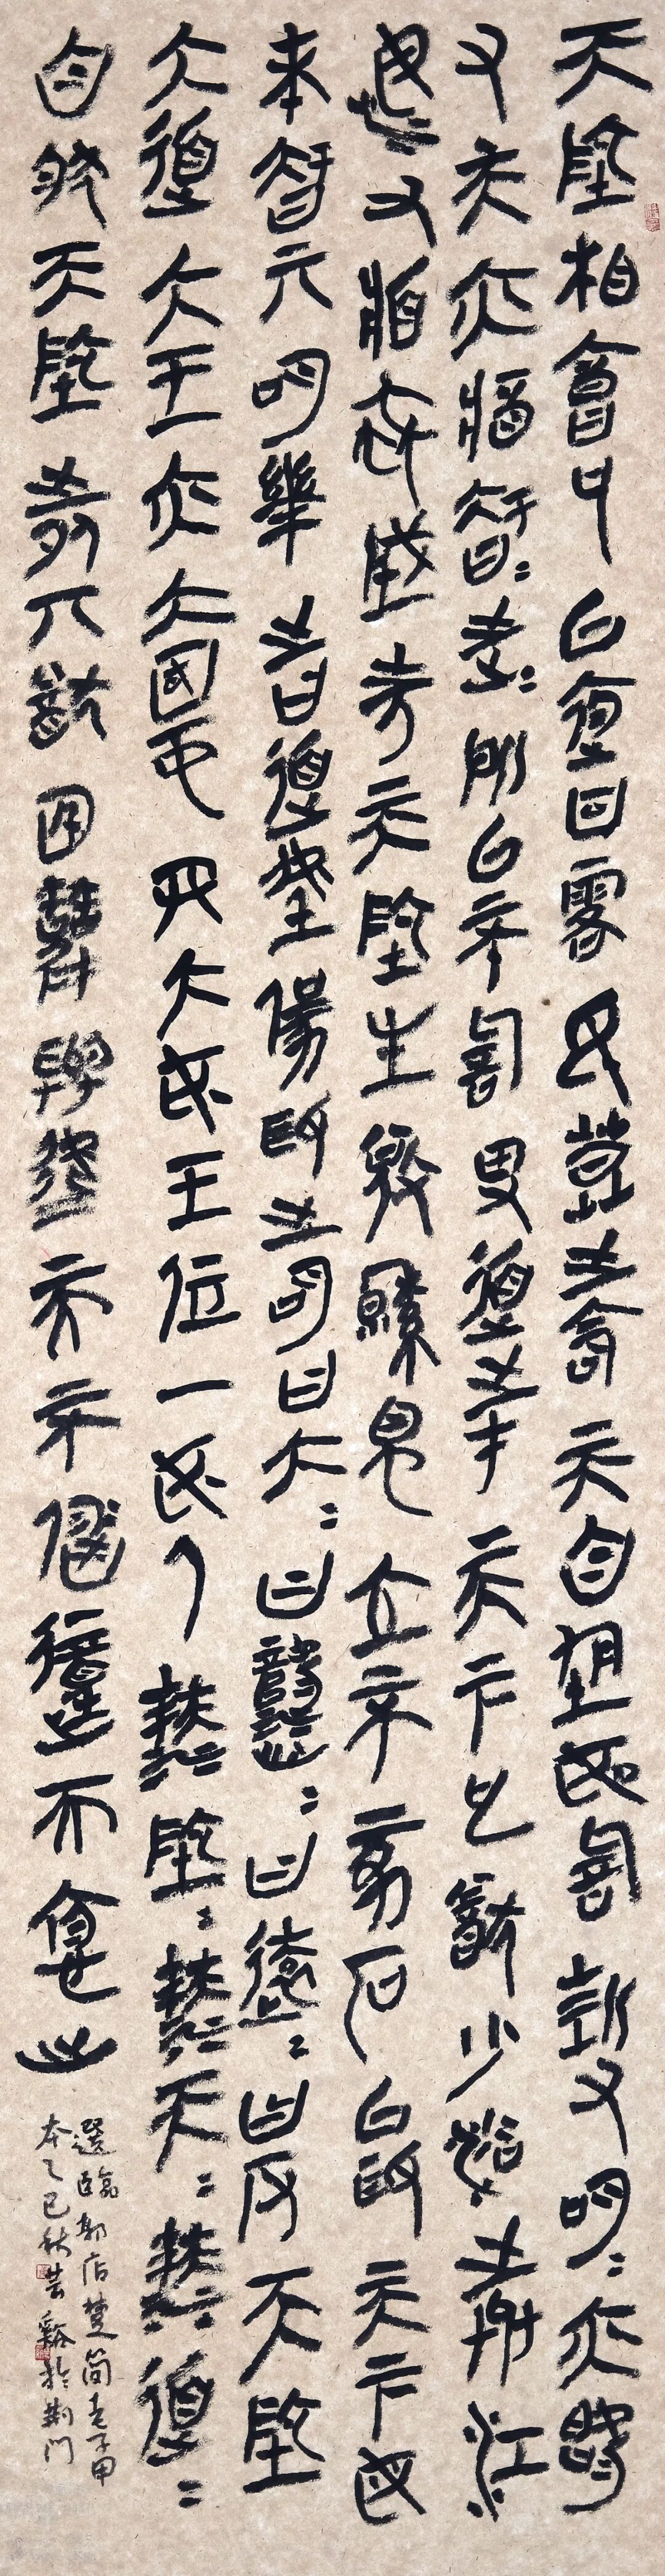 天地相合也以逾甘露民莫之令天自均安始制有名=亦既
有夫亦將知=止=所以不殆譬道之在天下也猶小谷之與江
海有狀混成先天地生寂寥獨立不改可以為天下母
未知其名字之曰道吾強為之名曰大=曰逝=曰遠=曰反天大地
大道大王亦大國中有四大安王居一安人法地=法天=法道=法
自然天地之間其猶橐籥與虛而不屈動而愈出
選臨郭店楚簡老子甲
本乙巳秋芸谿於荊門